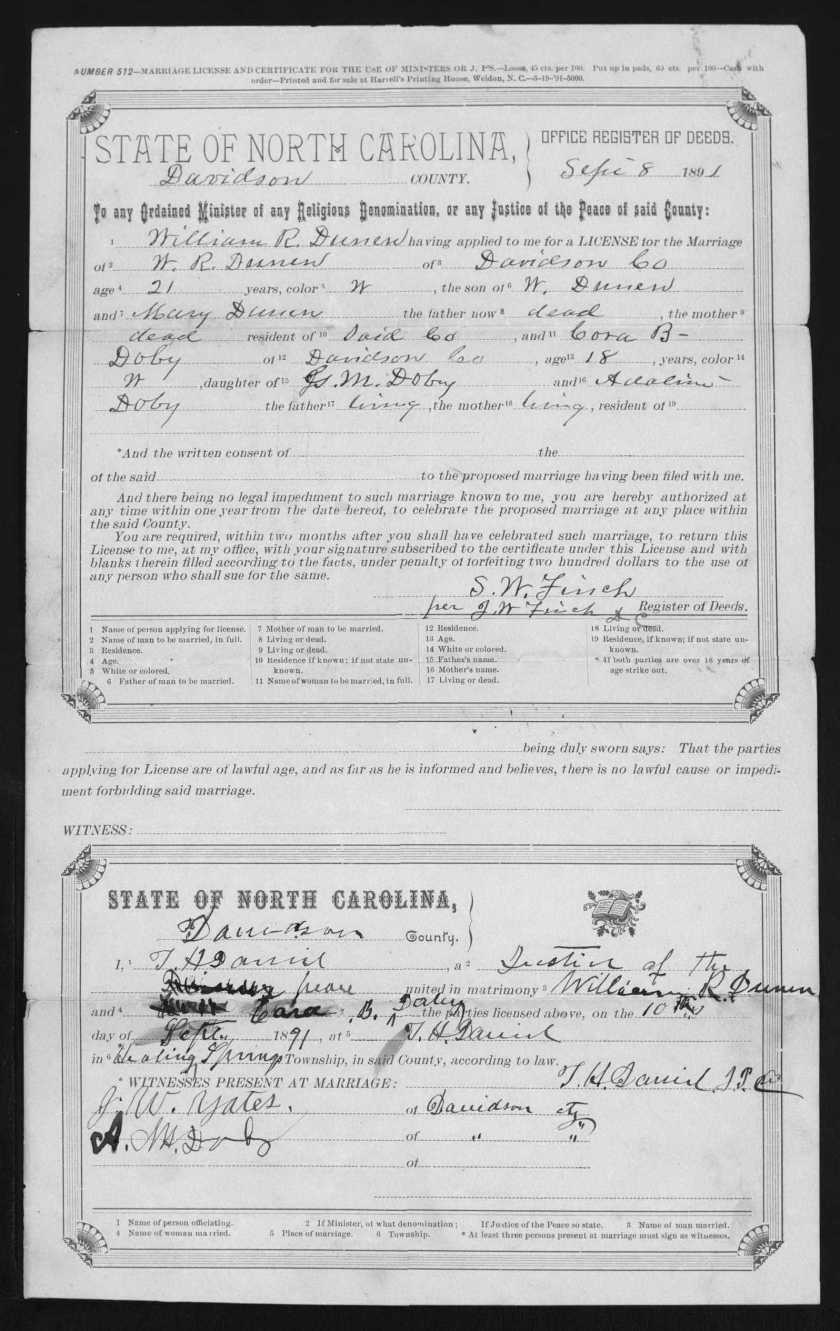 NUMBER 512—MARRIAGE LICENSE AND CERTIFICATE FOR THE USE OF MINISTERS OR J. P'S.—Loose, 45 cts. per 100. Put up in pads, 65 cts. per 100—Cash with
order—Printed and for sale at Harrell's Printing House, Weldon, N. C.—5-19-'91-5000.
STATE OF NORTH CAROLINA,
OFFICE REGISTER OF DEEDS.
Davidson COUNTY.
Sept 8 1891
To any Ordained Minister of any Religious Denomination, or any Justice of the Peace of said County:
1 William R. Dunen having applied to me for a LICENSE for the Marriage
of 2 W. R. Dunen of 3 Davidson Co
age 4 21 years, color 5 W, the son of 6 W. Dunen
and 7 Mary Dunen the father now 8 dead, the mother 9
dead resident of 10 Said Co, and 11 Cora B-
Doby of 12 Davidson Co, age 13 18, years, color 14
W, daughter of 15 Js. M. Doby and 16 Adaline
Doby the father 17 living, the mother 18 living, resident of 19
*And the written consent of the
of the said to the proposed marriage having been filed with me.
And there being no legal impediment to such marriage known to me, you are hereby authorized at
any time within one year from the date hereof, to celebrate the proposed marriage at any place within
the said County.
You are required, within two months after you shall have celebrated such marriage, to return this
License to me, at my office, with your signature subscribed to the certificate under this License and with
blanks therein filled according to the facts, under penalty of forfeiting two hundred dollars to the use of
any person who shall sue for the same.
S. W. Finch
per J. W Finch D C Register of Deeds.
1 Name of person applying for license.
2 Name of man to be married, in full.
3 Residence.
4 Age.
5 White or colored.
6 Father of man to be married.
7 Mother of man to be married.
8 Living or dead.
9 Living or dead.
10 Residence if known; if not state un-
known.
11 Name of woman to be married, in full.
12 Residence.
13 Age.
14 White or colored.
15 Father's name.
16 Mother's name.
17 Living or dead.
18 Living or dead.
19 Residence, if known; if not state un-
known.
* If both parties are over 18 years of
age strike out.
being duly sworn says: That the parties
applying for License are of lawful age, and as far as he is informed and believes, there is no lawful cause or impedi-
ment forbidding said marriage.
WITNESS:
STATE OF NORTH CAROLINA,
Davidson County.
I, 1 T H Daniel, a 2 Justice of the
peace united in matrimony 3 William R. Dunen
and 4 Cora B. Doby the parties licensed above, on the 10th
day of Sept. 1891, at 5 T. H. Daniel
in 6 Healing Springs Township, in said County, according to law.
* WITNESSES PRESENT AT MARRIAGE: T. H. Daniel J. P.
J. W. Yates. of Davidson cty
A. M. Doby of " "
of
1 Name of person officiating. 2 If Minister, of what denomination; If Justice of the Peace so state. 3 Name of man married.
4 Name of woman married. 5 Place of marriage. 6 Township. * At least three persons present at marriage must sign as witnesses.